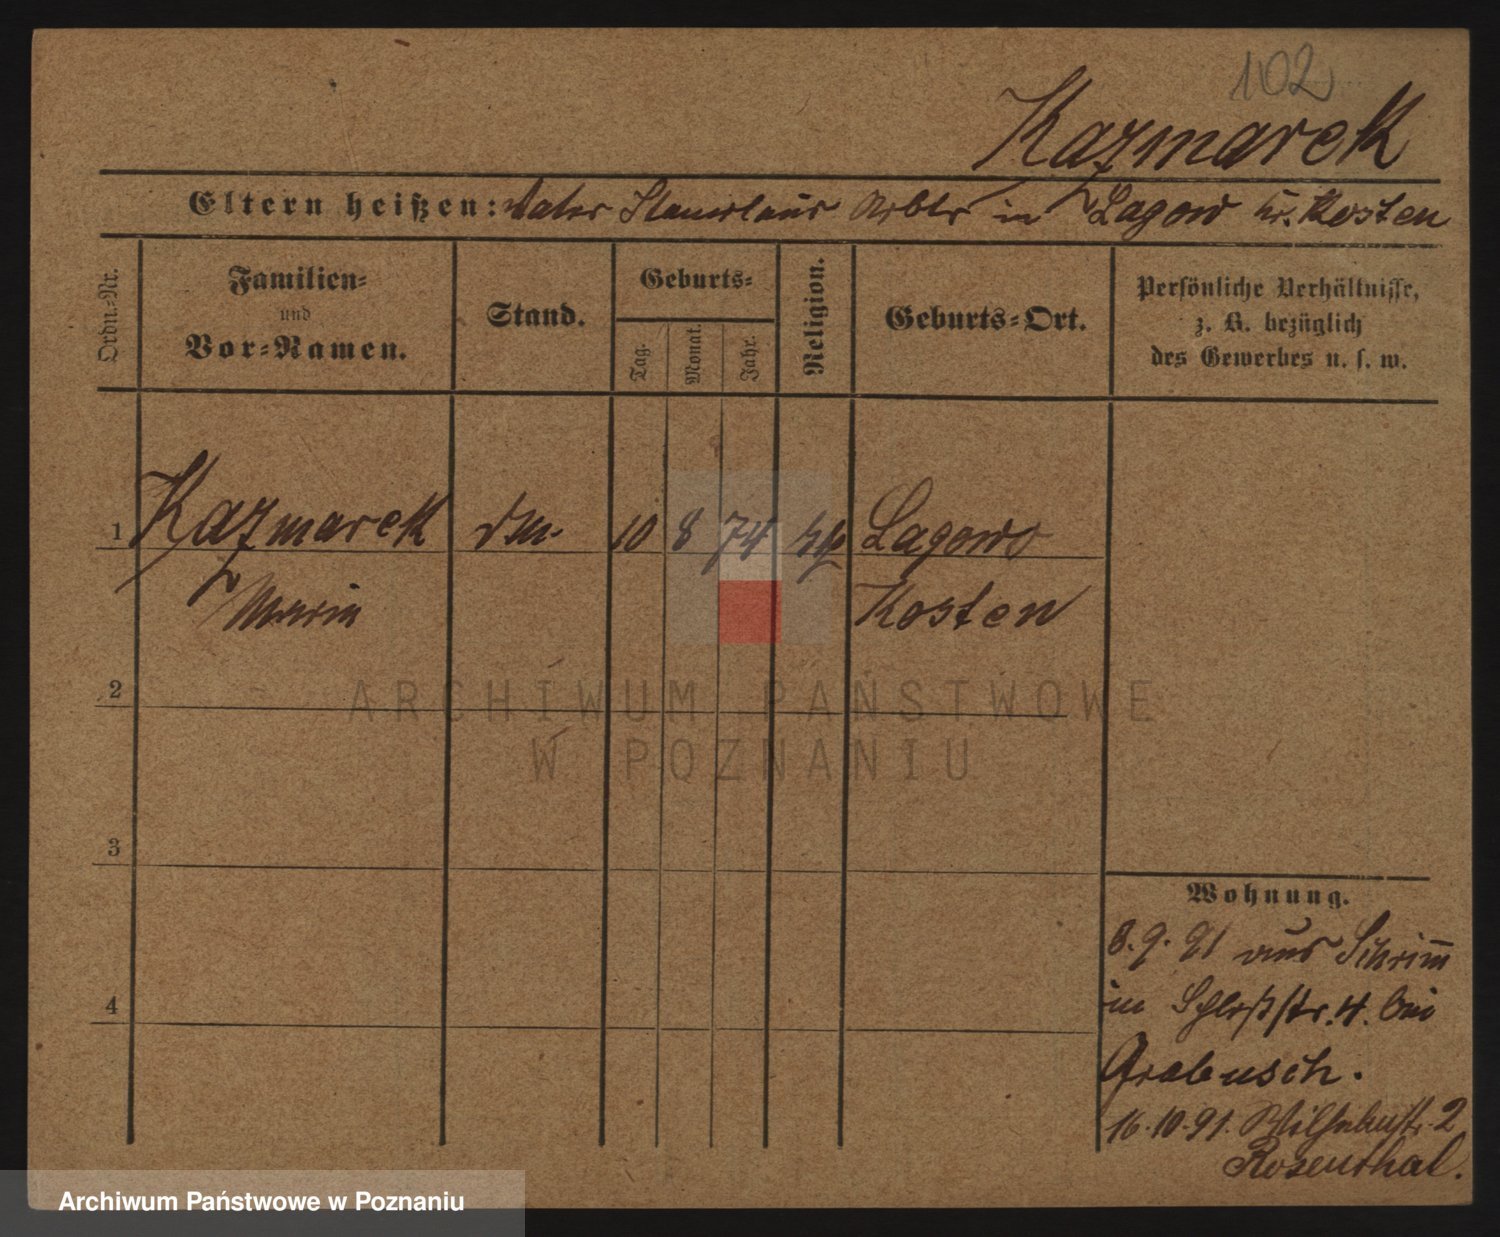 102
Kazmarek
Eltern heißen: Vater Stanislaus Arbtr in Lagow Kr. Kosten
Ordn.-Nr.
Familien-
und
Vor-Namen.
Stand.
Geburts-
Tag.
Monat.
Jahr.
Religion.
Geburts-Ort.
Persönliche Verhältnisse,
z. B. bezüglich
des Gewerbes u. s. w.
1 Kazmarek 10 8 74 kth Lagowo
Maria Kosten
2
ARCHIWUM PAŃSTWOWE
W POZNANIU
3
Wohnung.
8.9.91 aus Schrimm
in Schloßstr. 4. bei
4
Grabusch.
16.10.91. 2
Rosenthal.
Archiwum Państwowe w Poznaniu